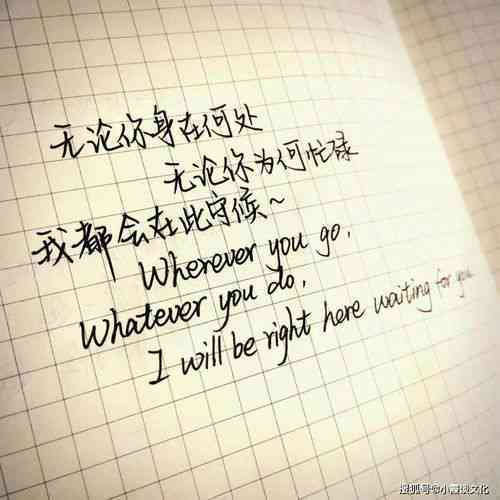 无论你身在何处
无论你为何忙碌
我都会在此守候~
Wherever you go,
Whatever you do,
I will be right here waiting for you
搜狐号@小霞谈文化